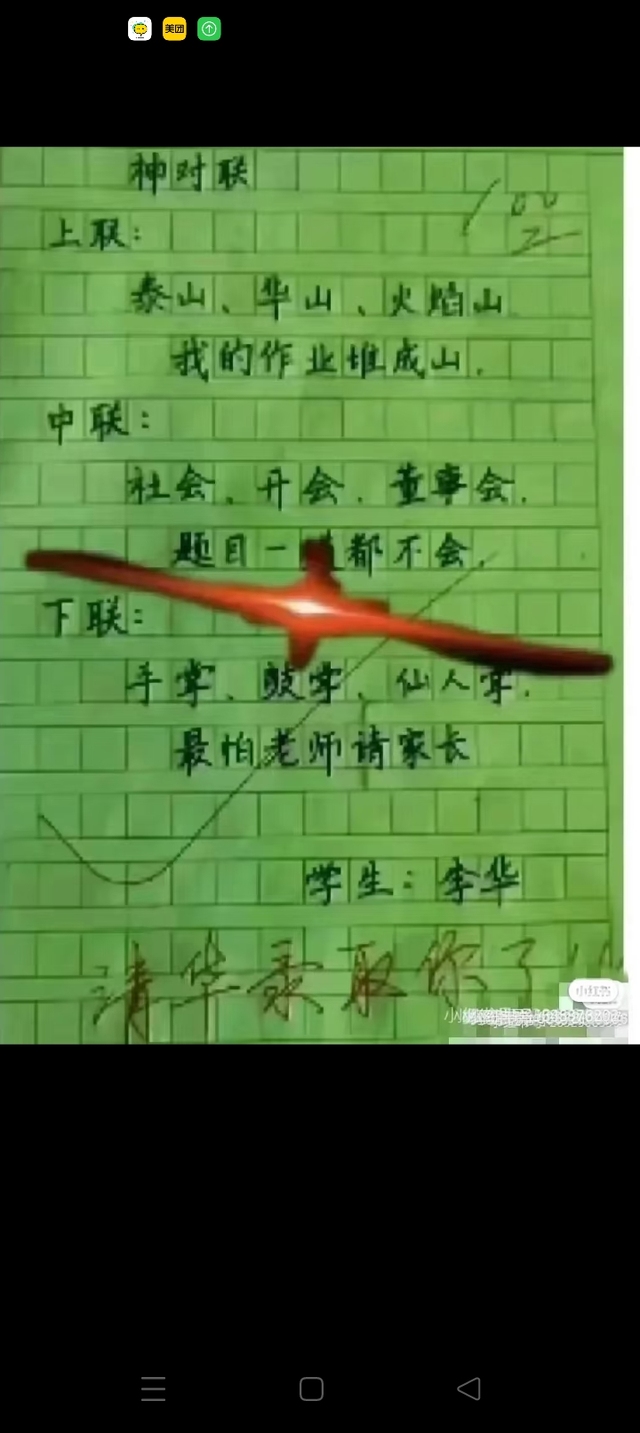 美团
神对联
100
上联：
泰山、华山、火焰山
我的作业堆成山.
中联：
社会、开会、董事会.
题目一道都不会.
下联：
手掌、鼓掌、仙人掌.
最怕老师请家长
学生：李华
清华录取你了
小红书